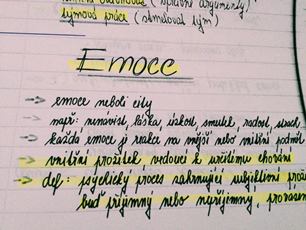 (správné argumenty)
týmová práce (stmelovat tým)
Emoce
→ emoce neboli city
→ např: nenávist, láska, úzkost, smutek, radost, strach
→ každá emoce je reakce na vnější nebo vnitřní podnět
→ vnitřní prožitek, vedoucí k určitému chování
→ def: psychický proces zahrnující subjektivní
buď příjemný nebo nepříjemný,